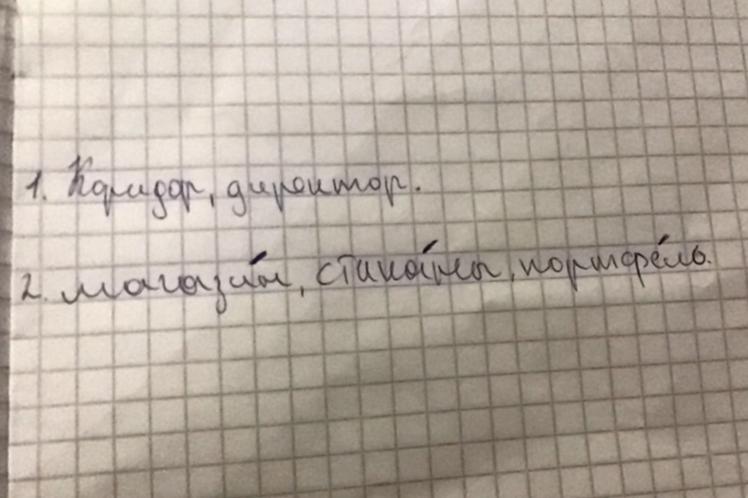 1. Коридор, директор.
2. магази́н, стака́ны, портфе́ль.